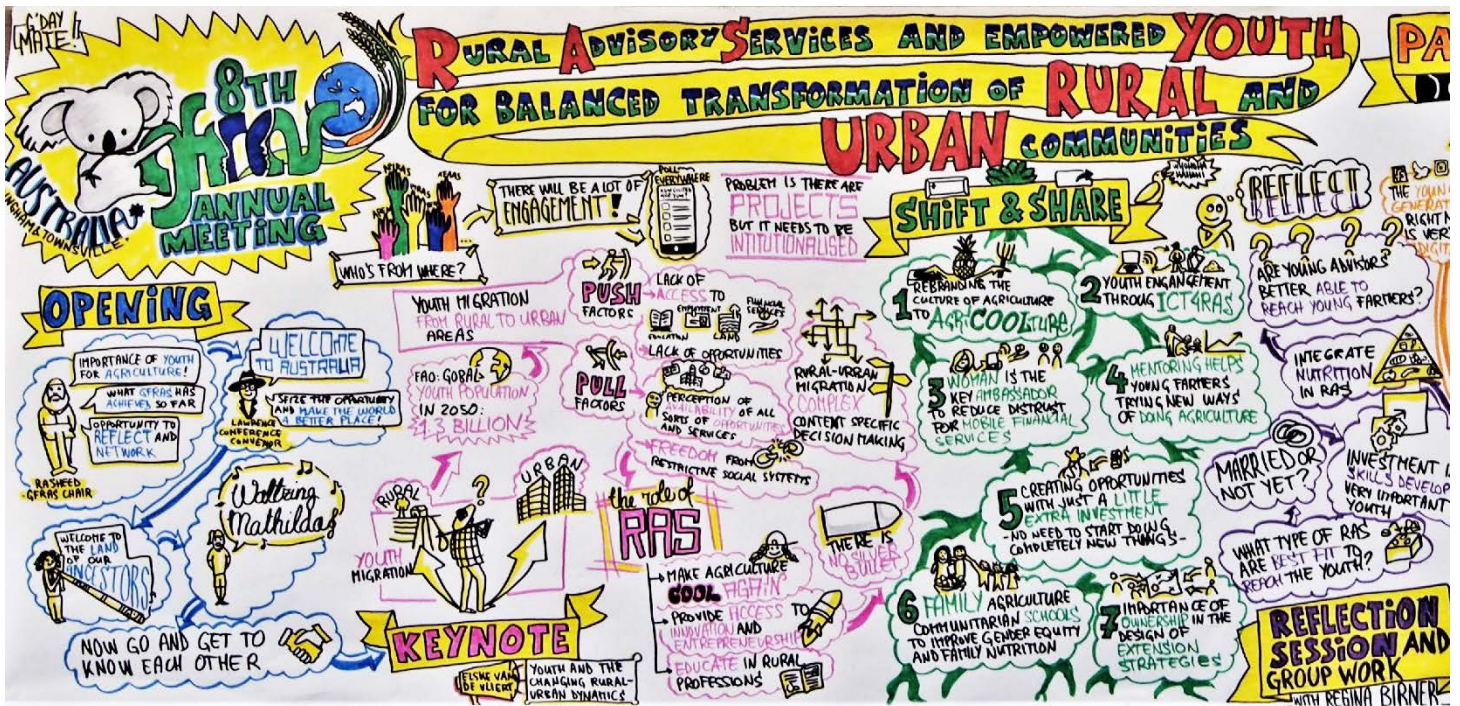 G'DAY
MATE!
8TH
gfras
ANNUAL
MEETING
AUSTRALIA*
& TOWNSVILLE!
RURAL ADVISORY SERVICES AND EMPOWERED YOUTH
FOR BALANCED TRANSFORMATION OF RURAL AND
URBAN COMMUNITIES
PA
WHO'S FROM WHERE?
THERE WILL BE A LOT OF
ENGAGEMENT!
POLL
EVERYWHERE
PROBLEM IS THERE ARE
PROJECTS
BUT IT NEEDS TO BE
INTITUTIONALISED
OPENING
IMPORTANCE OF YOUTH
FOR AGRICULTURE!
WHAT GFRAS HAS
ACHIEVED SO FAR
OPPORTUNITY TO
REFLECT AND
NETWORK
RASHEED
-GFRAS CHAIR
WELCOME
TO AUSTRALIA
SEIZE THE OPPORTUNITY
AND MAKE THE WORLD
A BETTER PLACE!
LAWRENCE
CONFERENCE
CONVEYOR
Waltzing
Mathilda
WELCOME TO
THE LAND
OF OUR
ANCESTORS
NOW GO AND GET TO
KNOW EACH OTHER
YOUTH MIGRATION
FROM RURAL TO URBAN
AREAS
FAO: GOBAL
YOUTH POPULATION
IN 2050:
1.3 BILLION
RURAL
?
URBAN
YOUTH
MIGRATION
KEYNOTE
ELSKE VAN
DE VLIERT
YOUTH AND THE
CHANGING RURAL-
URBAN DYNAMICS
PUSH
FACTORS
LACK OF
ACCESS TO
EDUCATION
EMPLOYMENT
LAND
FINANCIAL
SERVICES
LACK OF OPPORTUNITIES
PULL
FACTORS
PERCEPTION OF
AVAILABILITY OF ALL
SORTS OF OPPORTUNITIES
AND SERVICES
FREEDOM FROM
RESTRICTIVE SOCIAL SYSTEMS
RURAL-URBAN
MIGRATION
COMPLEX
CONTENT SPECIFIC
DECISION MAKING
the role of
RAS
MAKE AGRICULTURE
COOL AGAIN
PROVIDE ACCESS TO
INNOVATION AND
ENTREPRENEURSHIP
EDUCATE IN RURAL
PROFESSIONS
THERE IS
NO SILVER
BULLET
SHIFT & SHARE
1 REBRANDING THE
CULTURE OF AGRICULTURE
TO AGRICOOLTURE
2 YOUTH ENGANGEMENT
THROUG ICT4RAS
3 WOMAN IS THE
KEY AMBASSADOR
TO REDUCE DISTRUST
FOR MOBILE FINANCIAL
SERVICES
4 MENTORING HELPS
YOUNG FARMERS
TRYING NEW WAYS
OF DOING AGRICULTURE
5 CREATING OPPORTUNITIES
WITH JUST A LITTLE
EXTRA INVESTMENT
-NO NEED TO START DOING
COMPLETELY NEW THINGS-
6 FAMILY AGRICULTURE
COMMUNITARIAN SCHOOLS
TO IMPROVE GENDER EQUITY
AND FAMILY NUTRITION
7 IMPORTANCE OF
OWNERSHIP IN THE
DESIGN OF
EXTENSION
STRATEGIES
REFLECT
THE YOUN
GENERAT
RIGHT N
IS VER
DIGIT
? ? ? ?
ARE YOUNG ADVISORS
BETTER ABLE TO
REACH YOUNG FARMERS?
INTEGRATE
NUTRITION
IN RAS
MARRIED OR
NOT YET?
INVESTMENT I
SKILLS DEVELOP
VERY IMPORTANT
YOUTH
WHAT TYPE OF RAS
ARE BEST FIT TO
REACH THE YOUTH?
REFLECTION
SESSION AND
GROUP WORK
WITH REGINA BIRNER